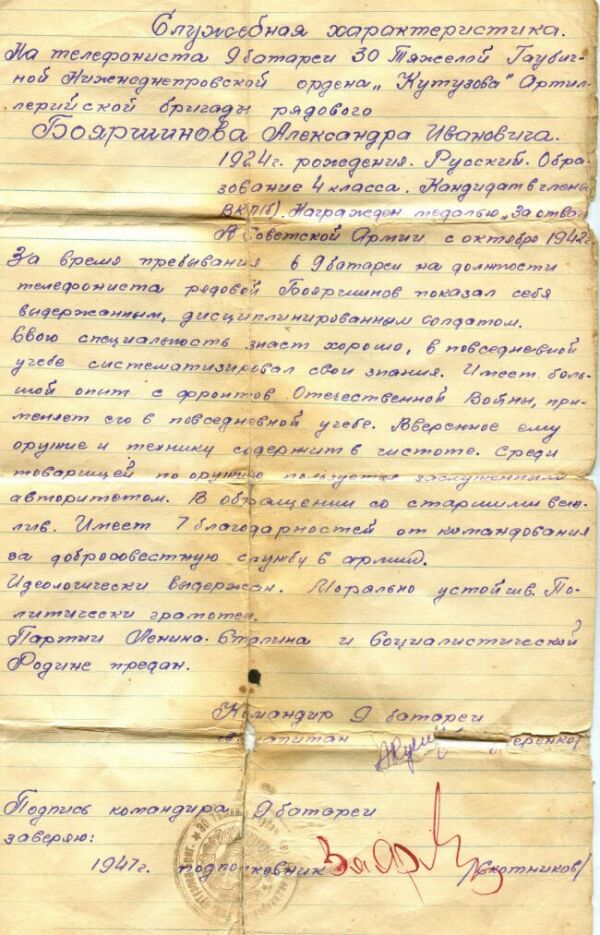 Служебная характеристика.
На телефониста 9 батареи 30 Тяжелой Гаубич-
ной Нижнеднепровской ордена „Кутузова" Артил-
лерийской бригады рядового
Бояршинова Александра Ивановича.
1924г. рождения. Русский. Обра-
зование 4 класса. Кандидат в члены
ВКП(б). Награжден медалью „За отвагу
В Советской Армии с октября 1942г.
За время пребывания в 9 батареи на должности
телефониста рядовой Бояршинов показал себя
выдержанным, дисциплинированным солдатом.
Свою специальность знает хорошо, в повседневной
учебе систематизировал свои знания. Имеет боль-
шой опыт с фронтов Отечественной Войны, при-
меняет его в повседневной учебе. Вверенное ему
оружие и технику содержит в чистоте. Среди
товарищей по оружию пользуется заслуженным
авторитетом. В обращении со старшими веж-
лив. Имеет 7 благодарностей от командования
за добросовестную службу в армии.
Идеологически выдержан. Морально устойчив. По-
литически грамотен.
Партии Ленина-Сталина и Социалистической
Родине предан.
Командир 9 батареи
капитан
Подпись командира 9 батареи
заверяю:
1947г. подполковник /Скотников/